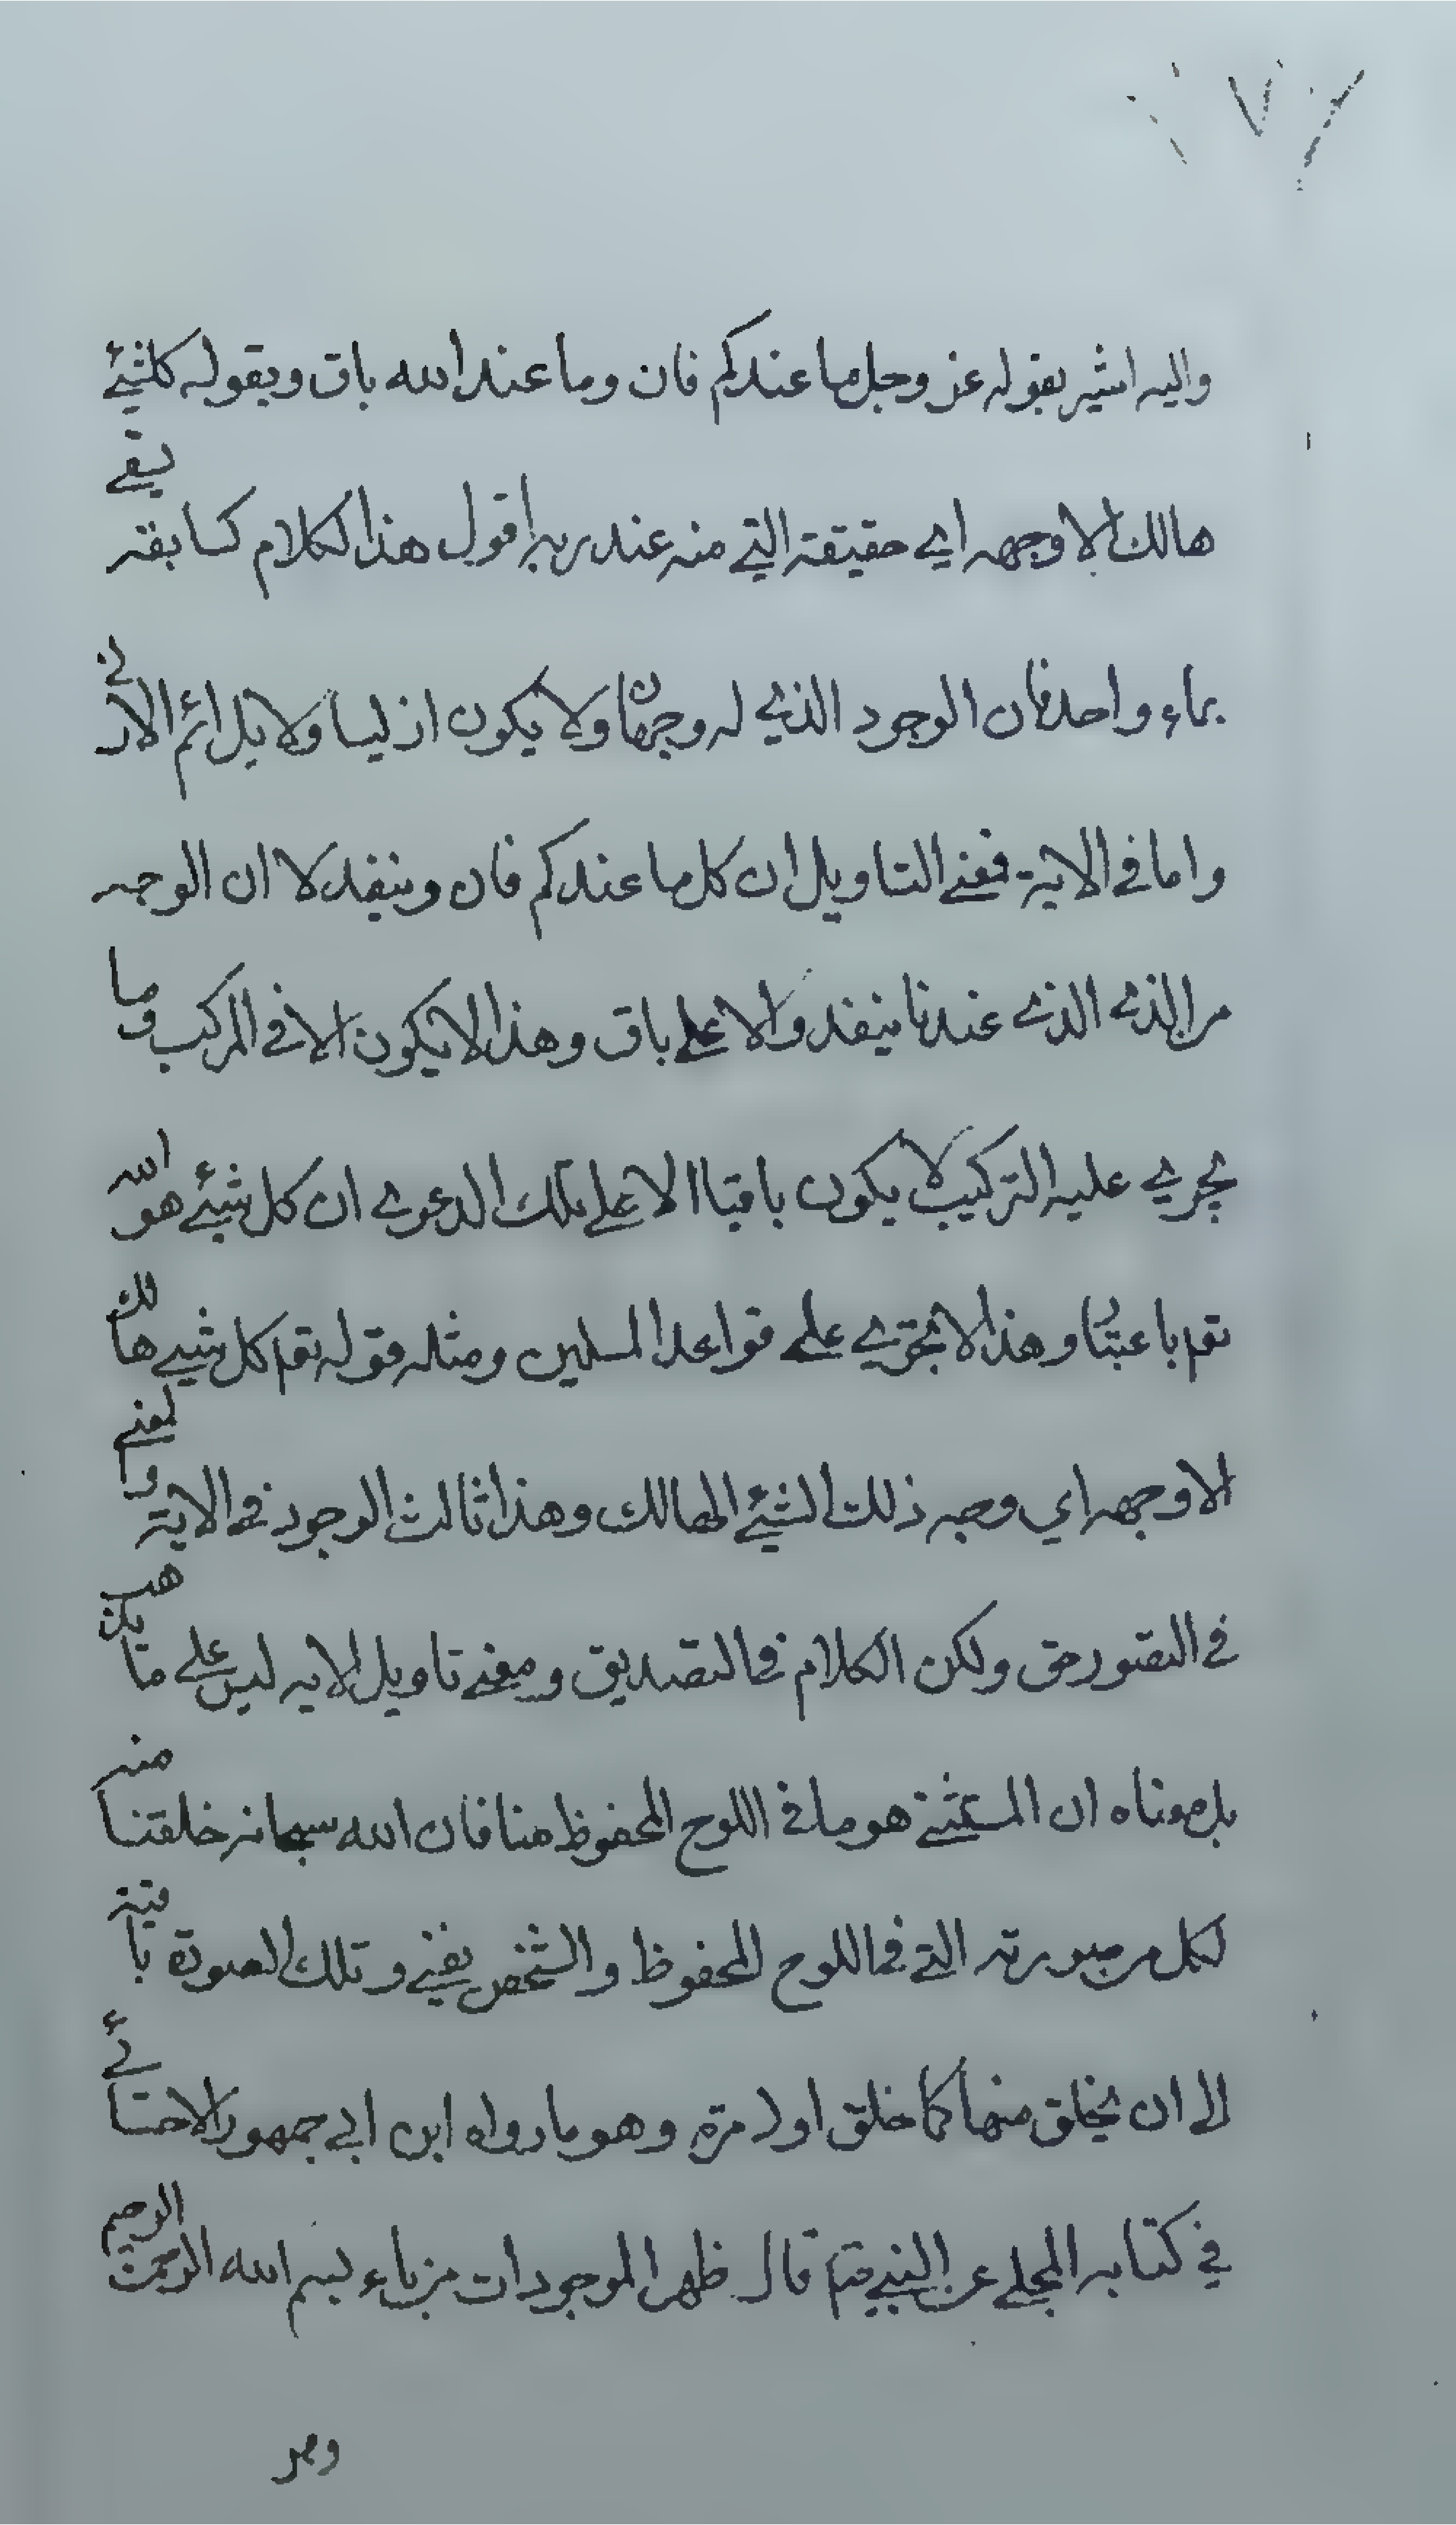 واليه اشير بقوله عز وجل ما عندكم فان وما عند الله باق وبقوله كلشئ
هالك الا وجهه اي حقيقته التي منه عند ربه اقول هذا الكلام كسابقه يسقى
بماء واحد فان الوجود الذي له وجهان ولا يكون ازليا ولا يلائم الازلى
واما في الاية ففي التاويل ان كل ما عندكم فان وينفد لا ان الوجه
من الذي الذي عندنا ينفد والاعلى باق وهذا لا يكون الا في المركب وما
يجري عليه التركيب لا يكون باقيا الا على تلك الدعوى ان كل شئ هو الله
تعم باعتبار وهذا لا يجري على قواعد المسلمين ومثله قوله تعم كل شيء هالك
الا وجهه اي وجه ذلك الشئ الهالك وهذا ثالث الوجود في الاية والمعنى
في التصور حق ولكن الكلام في التصديق ومعنى تاويل الايه ليس على
بل معناه ان المستثنى هو ما في اللوح المحفوظ هنا فان الله سبحانه خلقنا منه
لكل من صورته التي في اللوح المحفوظ والشخص يفنى وتلك الصورة باقية
الى ان يخلق منها كما خلق اول مرة وهو ما رواه ابن ابي جمهور الاحسائي
في كتابه المجلي عن النبي صم قال ظهر الموجودات من باء بسم الله الرحمن الرحيم